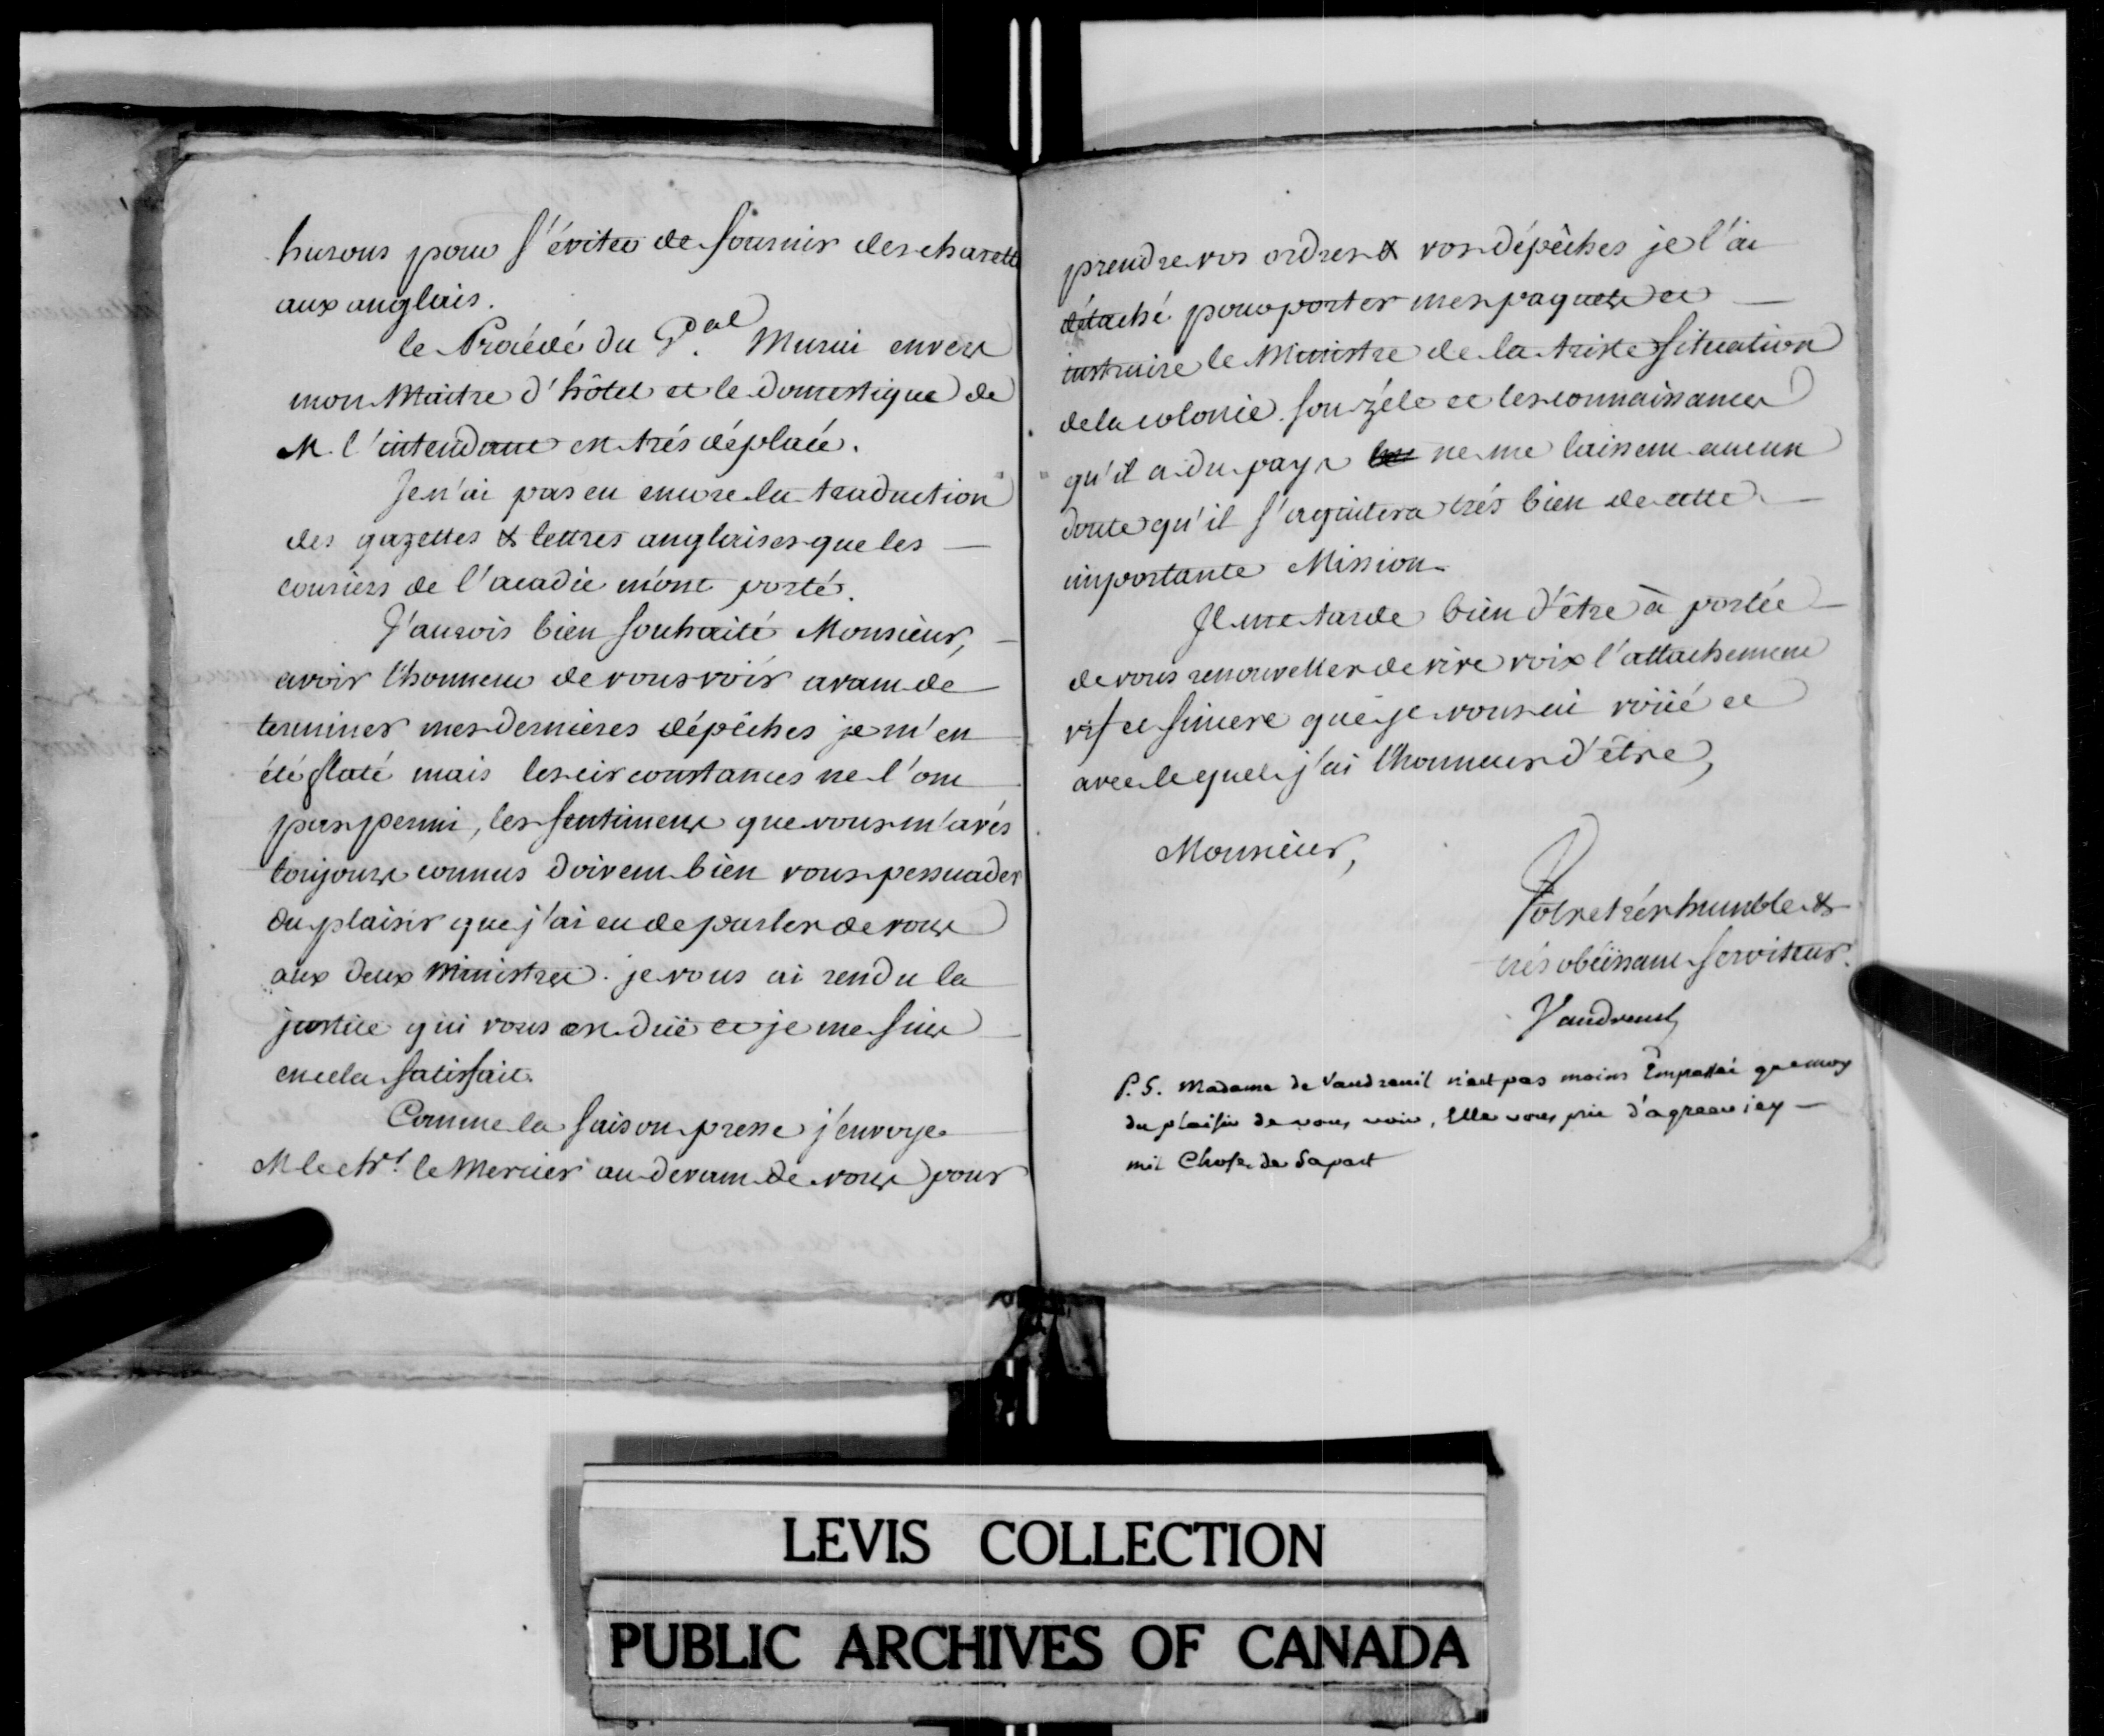 hurons pour s'éviter de fournir des charette
aux anglais.
le Procédé du G.al Murai envers
mon Maitre d'hôtel et le domestique de
M. l'intendant est trés déplacé.
Je n'ai pas eu encore la traduction
des gazettes & lettres anglaises que les
couriers de l'acadie m'ont porté.
J'aurois bien souhaité Monsieur,
avoir l'honneur de vous voir avant de
terminer mes dernieres dépêches je m'en
été flaté mais les circonstances ne l'ont
pas permi, les sentimens que vous m'avés
toujours connus doivent bien vous persuader
du plaisir que j'ai eu de parler de vous
aux deux Ministres. je vous ai rendu la
justice qui vous est düe et je me suis
en cela satisfait.
Comme la saison presse j'envoye
M le Ch.r le Mercier au devant de vous pour
prendre vos ordres & vos dépêches je l'ai
détaché pour porter mes paquets et
instruire le Ministre de la triste situation
de la colonie. son zéle et les connaissances
qu'il a du pays ne me laissent aucun
doute qu'il s'aquitera trés bien de cette
importante Mission.
Il me tarde bien d'être à portée
de vous renouveller de vive voix l'attachement
vif et sincere que je vous ai voüé et
avec lequel j'ai l'honneur d'être,
Monsieur,
Votre trés humble &
trés obéissant serviteur.
Vaudreuil
P.S. Madame de Vaudreuil n'est pas moins Empressée que moy
du plaisir de vous voir, Elle vous prie d'agreer icy
mil Chose de Sapart
LEVIS COLLECTION
PUBLIC ARCHIVES OF CANADA